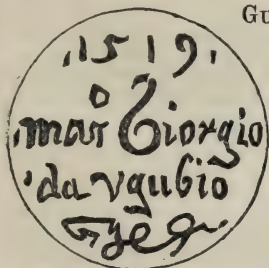 Gu
.1519.
o
.mar Giorgio
.da vgubio